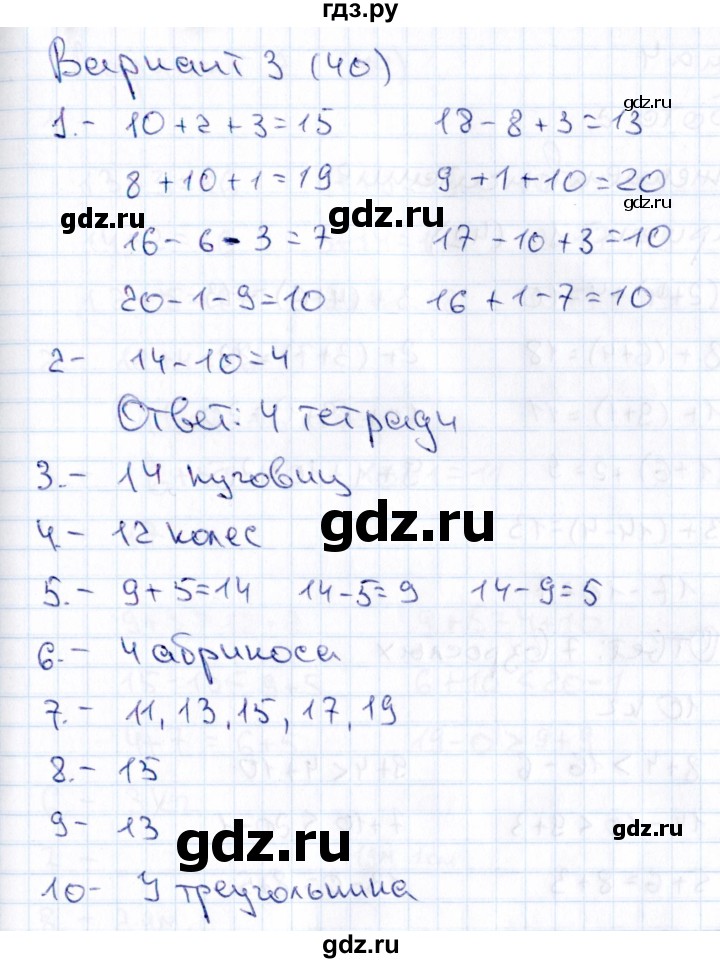 гдз.ру
Вариант 3 (40)
1.- 10+2+3=15 18-8+3=13
gdz.ru
8+10+1=19 9+1+10=20
gdz.ru gdz.ru gdz.ru
16-6-3=7 17-10+3=10
20-1-9=10 16+1-7=10
2- 14-10=4
Ответ: 4 тетради
3.- 14 пуговиц
gdz.ru
4.- 12 колес
5.- 9+5=14 14-5=9 14-9=5
6.- 4 абрикоса
7.- 11, 13, 15, 17, 19
8.- 15
9- 13
gdz.ru gdz.ru
10- 4 треугольника
gdz.ru